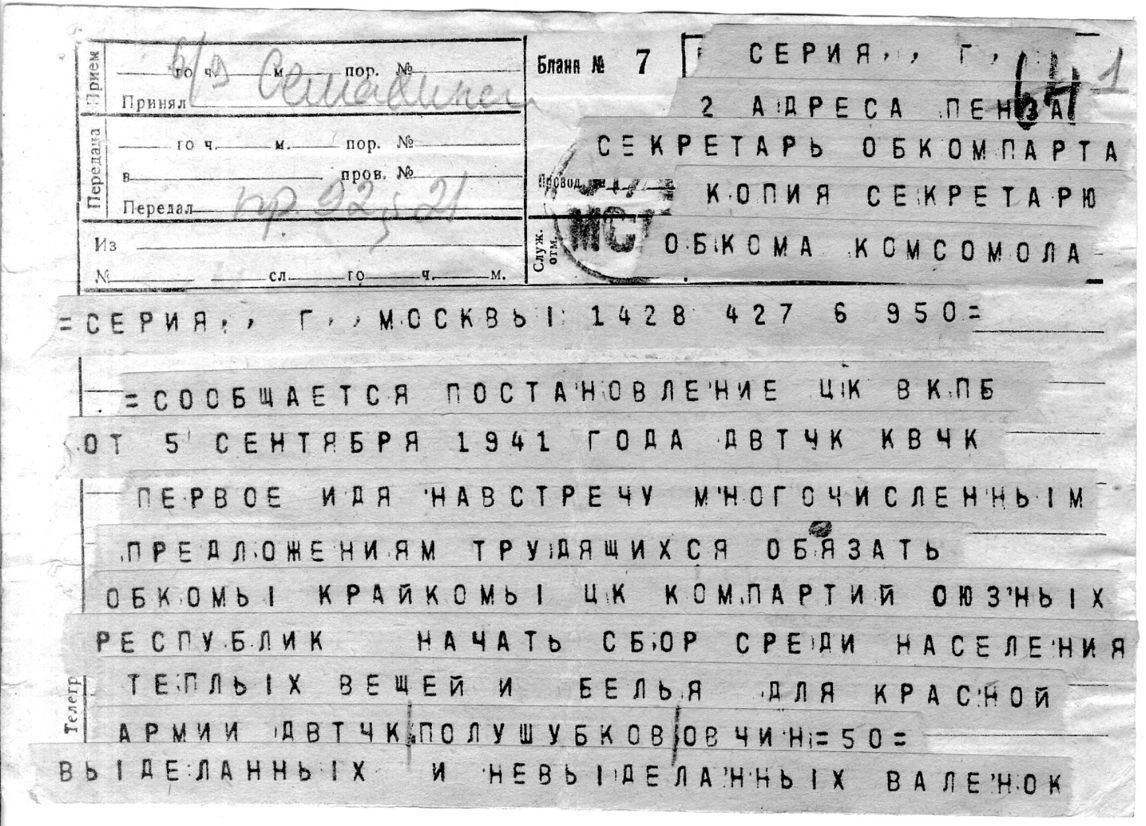 Прием
го ч. м. пор. №
Принял
Передача
го ч. м. пор. №
в пров. №
Передал
пр. 22 21
Из
№ сл. го ч. м.
Бланк № 7
Провод
Служ. отм.
СЕРИЯ,, Г,
1
2 АДРЕСА ПЕНЗА
СЕКРЕТАРЬ ОБКОМПАРТА
КОПИЯ СЕКРЕТАРЮ
ОБКОМА КОМСОМОЛА
=СЕРИЯ,, Г,, МОСКВЫ 1428 427 6 950=
=СООБЩАЕТСЯ ПОСТАНОВЛЕНИЕ ЦК ВКПБ
ОТ 5 СЕНТЯБРЯ 1941 ГОДА ДВТЧК КВЧК
ПЕРВОЕ ИДЯ НАВСТРЕЧУ МНОГОЧИСЛЕННЫМ
ПРЕДЛОЖЕНИЯМ ТРУДЯЩИХСЯ ОБЯЗАТЬ
ОБКОМЫ КРАЙКОМЫ ЦК КОМПАРТИЙ ОЮЗНЫХ
РЕСПУБЛИК НАЧАТЬ СБОР СРЕДИ НАСЕЛЕНИЯ
ТЕПЛЫХ ВЕЩЕЙ И БЕЛЬЯ ДЛЯ КРАСНОЙ
АРМИИ ДВТЧК ПОЛУШУБКОВ ОВЧИН=50=
ВЫДЕЛАННЫХ И НЕВЫДЕЛАННЫХ ВАЛЕНОК
Телегр